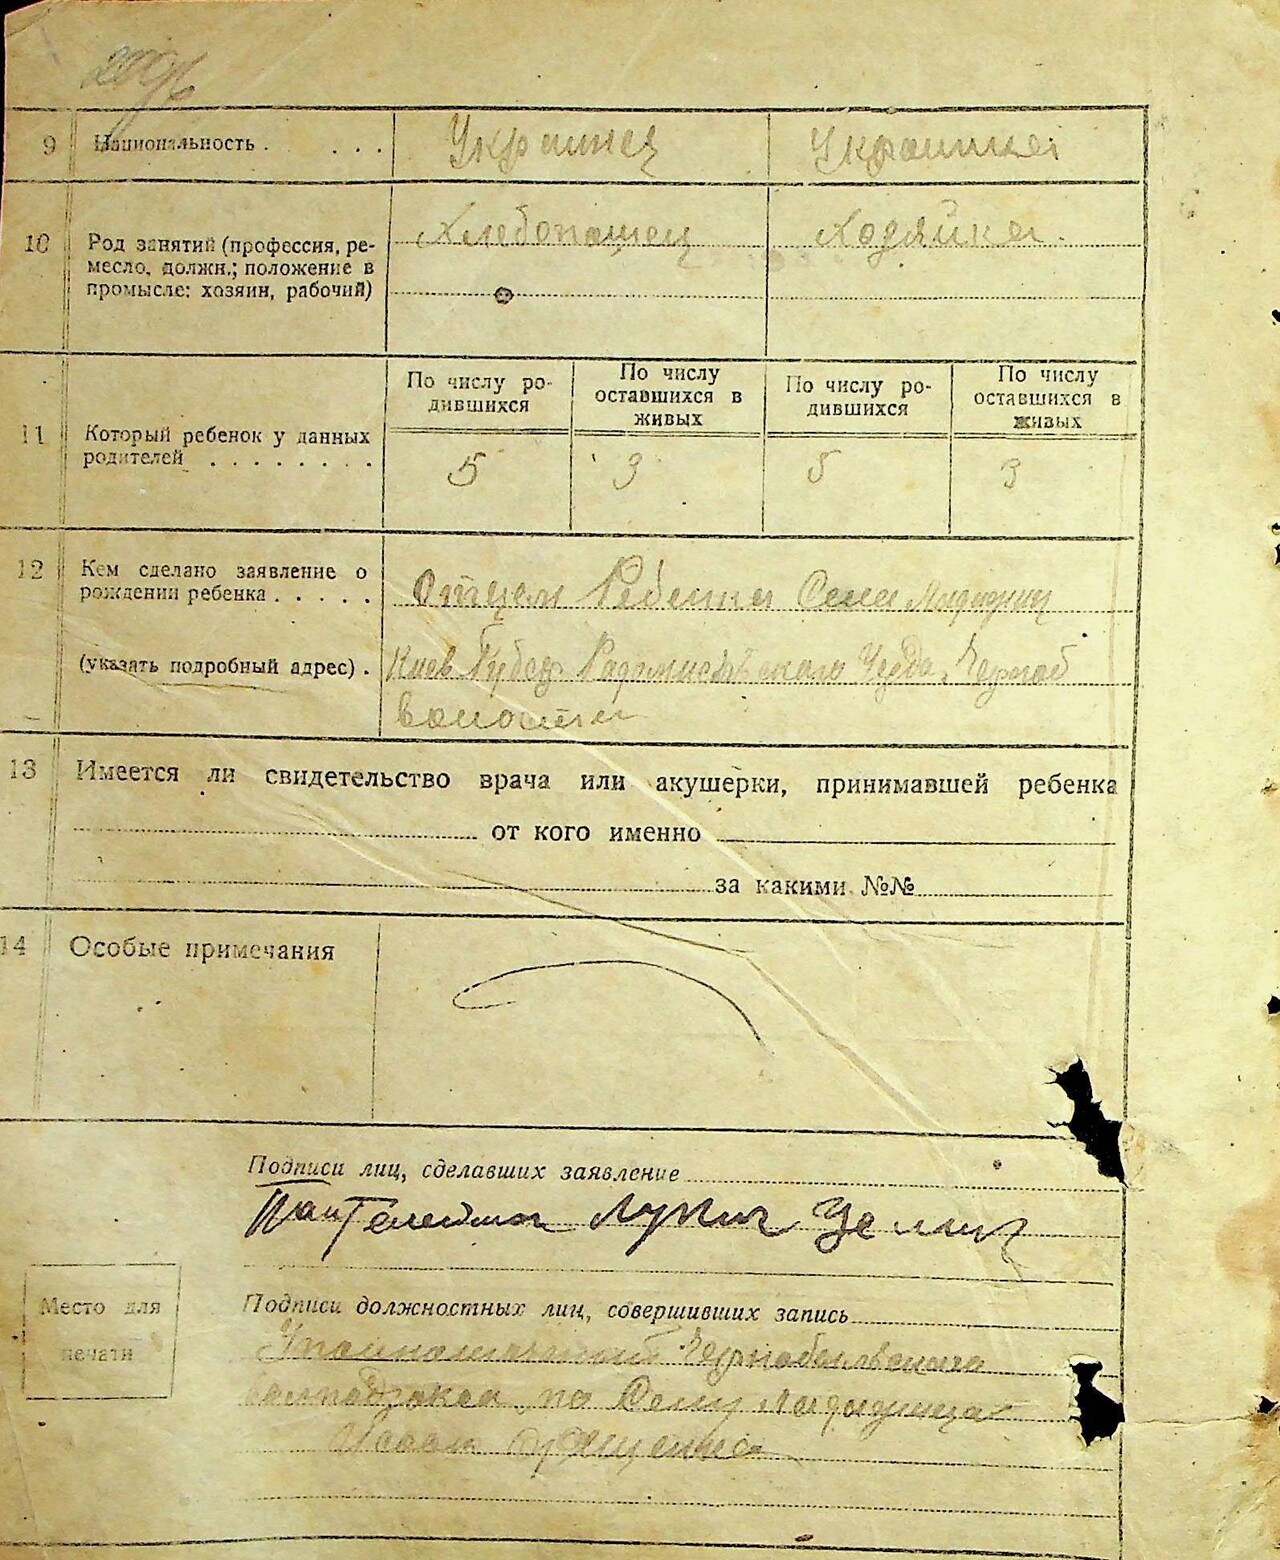 9 Национальность . . . . Украинец Украинка
10 Род занятий (профессия, ре-
месло, должн.; положение в
промысле: хозяин, рабочий)
Хлебопашец Хозяйка.
11 Который ребенок у данных
родителей . . . . . . . .
По числу ро-
дившихся
По числу
оставшихся в
живых
По числу ро-
дившихся
По числу
оставшихся в
живых
5 3 5 3
12 Кем сделано заявление о
рождении ребенка . . . . .
Отцем Ребенка Села
(указать подробный адрес) .
Киев Губер Радомисльского Уезда, Черноб
волости
13 Имеется ли свидетельство врача или акушерки, принимавшей ребенка
от кого именно
за какими №№
14 Особые примечания
Подписи лиц, сделавших заявление
Пантелеймон Лукич
Место для
печати
Подписи должностных лиц, совершивших запись
Чернобыльского
по Селу